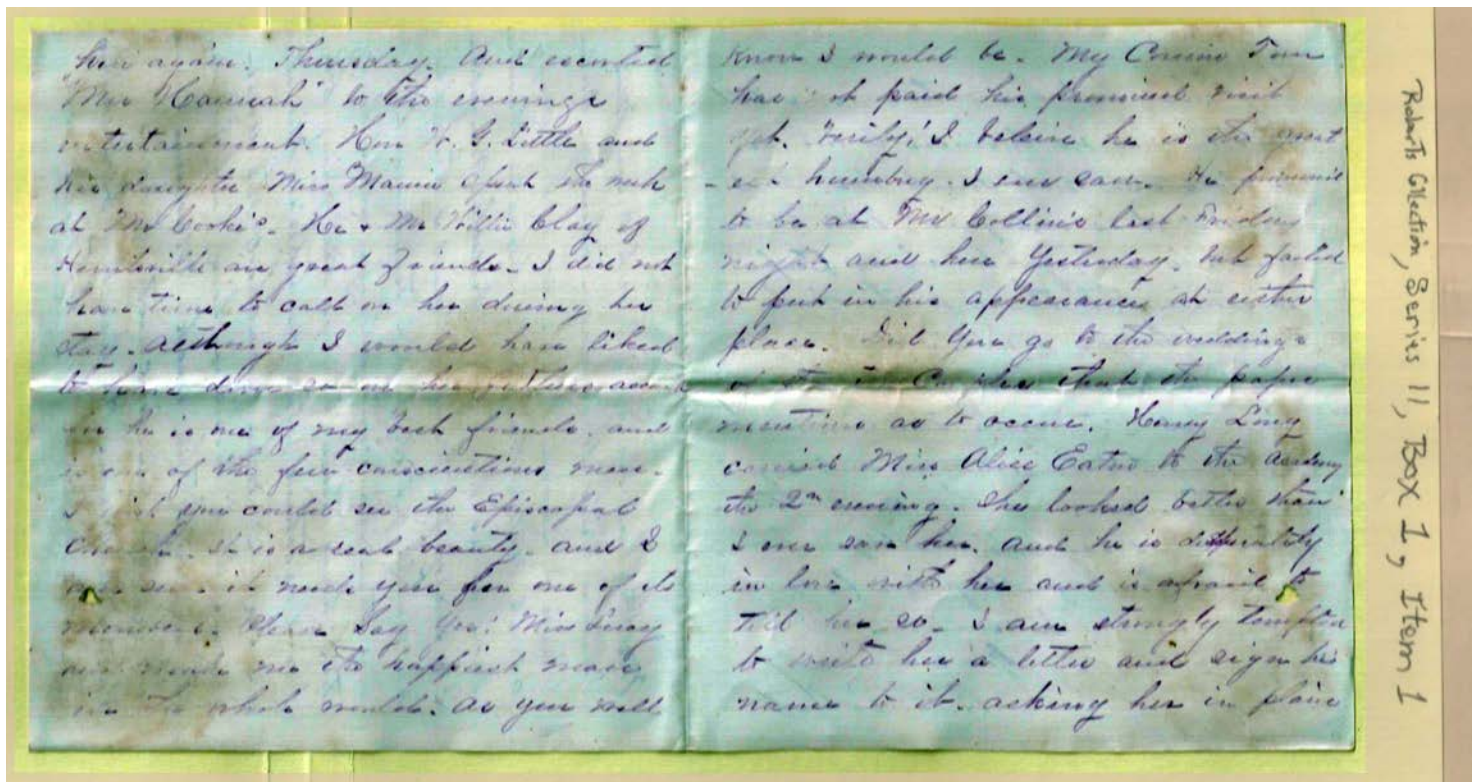 her again. Thursday. And escorted
"Mrs Hannah" to the evenings
entertainment. Hon W. G. Little and
his daughter Miss Mamie spent the week
at Mr Cooke's. He & Mr Willie Clay of
Huntsville are great friends. I did not
have time to call on her during her
stay. Although I would have liked
to have done so on her fathers account
for he is one of my best friends. and
is one of the few conscientious men.
I wish you could see the Episcopal
Church. it is a real beauty. and I
it needs you for one of its
members. Please Say Yes! Miss Lucy
and make me the happiest man
in the whole world. as you well
know I would be. My Cousin Tom
has not paid his promised visit
yet. Verily! I beleive he is the great
-est humbug. I ever saw. He promised
to be at Mrs Collins last Friday
night and here Yesterday. but failed
to put in his appearance at either
place. Did you go to the weddings
of the Couples that the paper
mentions as to occur. Henry Long
carried Miss Alice Eaton to the academy
the 2nd evening. She looked better than
I ever saw her. and he is desperately
in love with her and is afraid to
tell her so. I am strongly tempted
to write her a letter and sign his
name to it. asking her in plain
Roberts Collection, Series 11, Box 1, Item 1